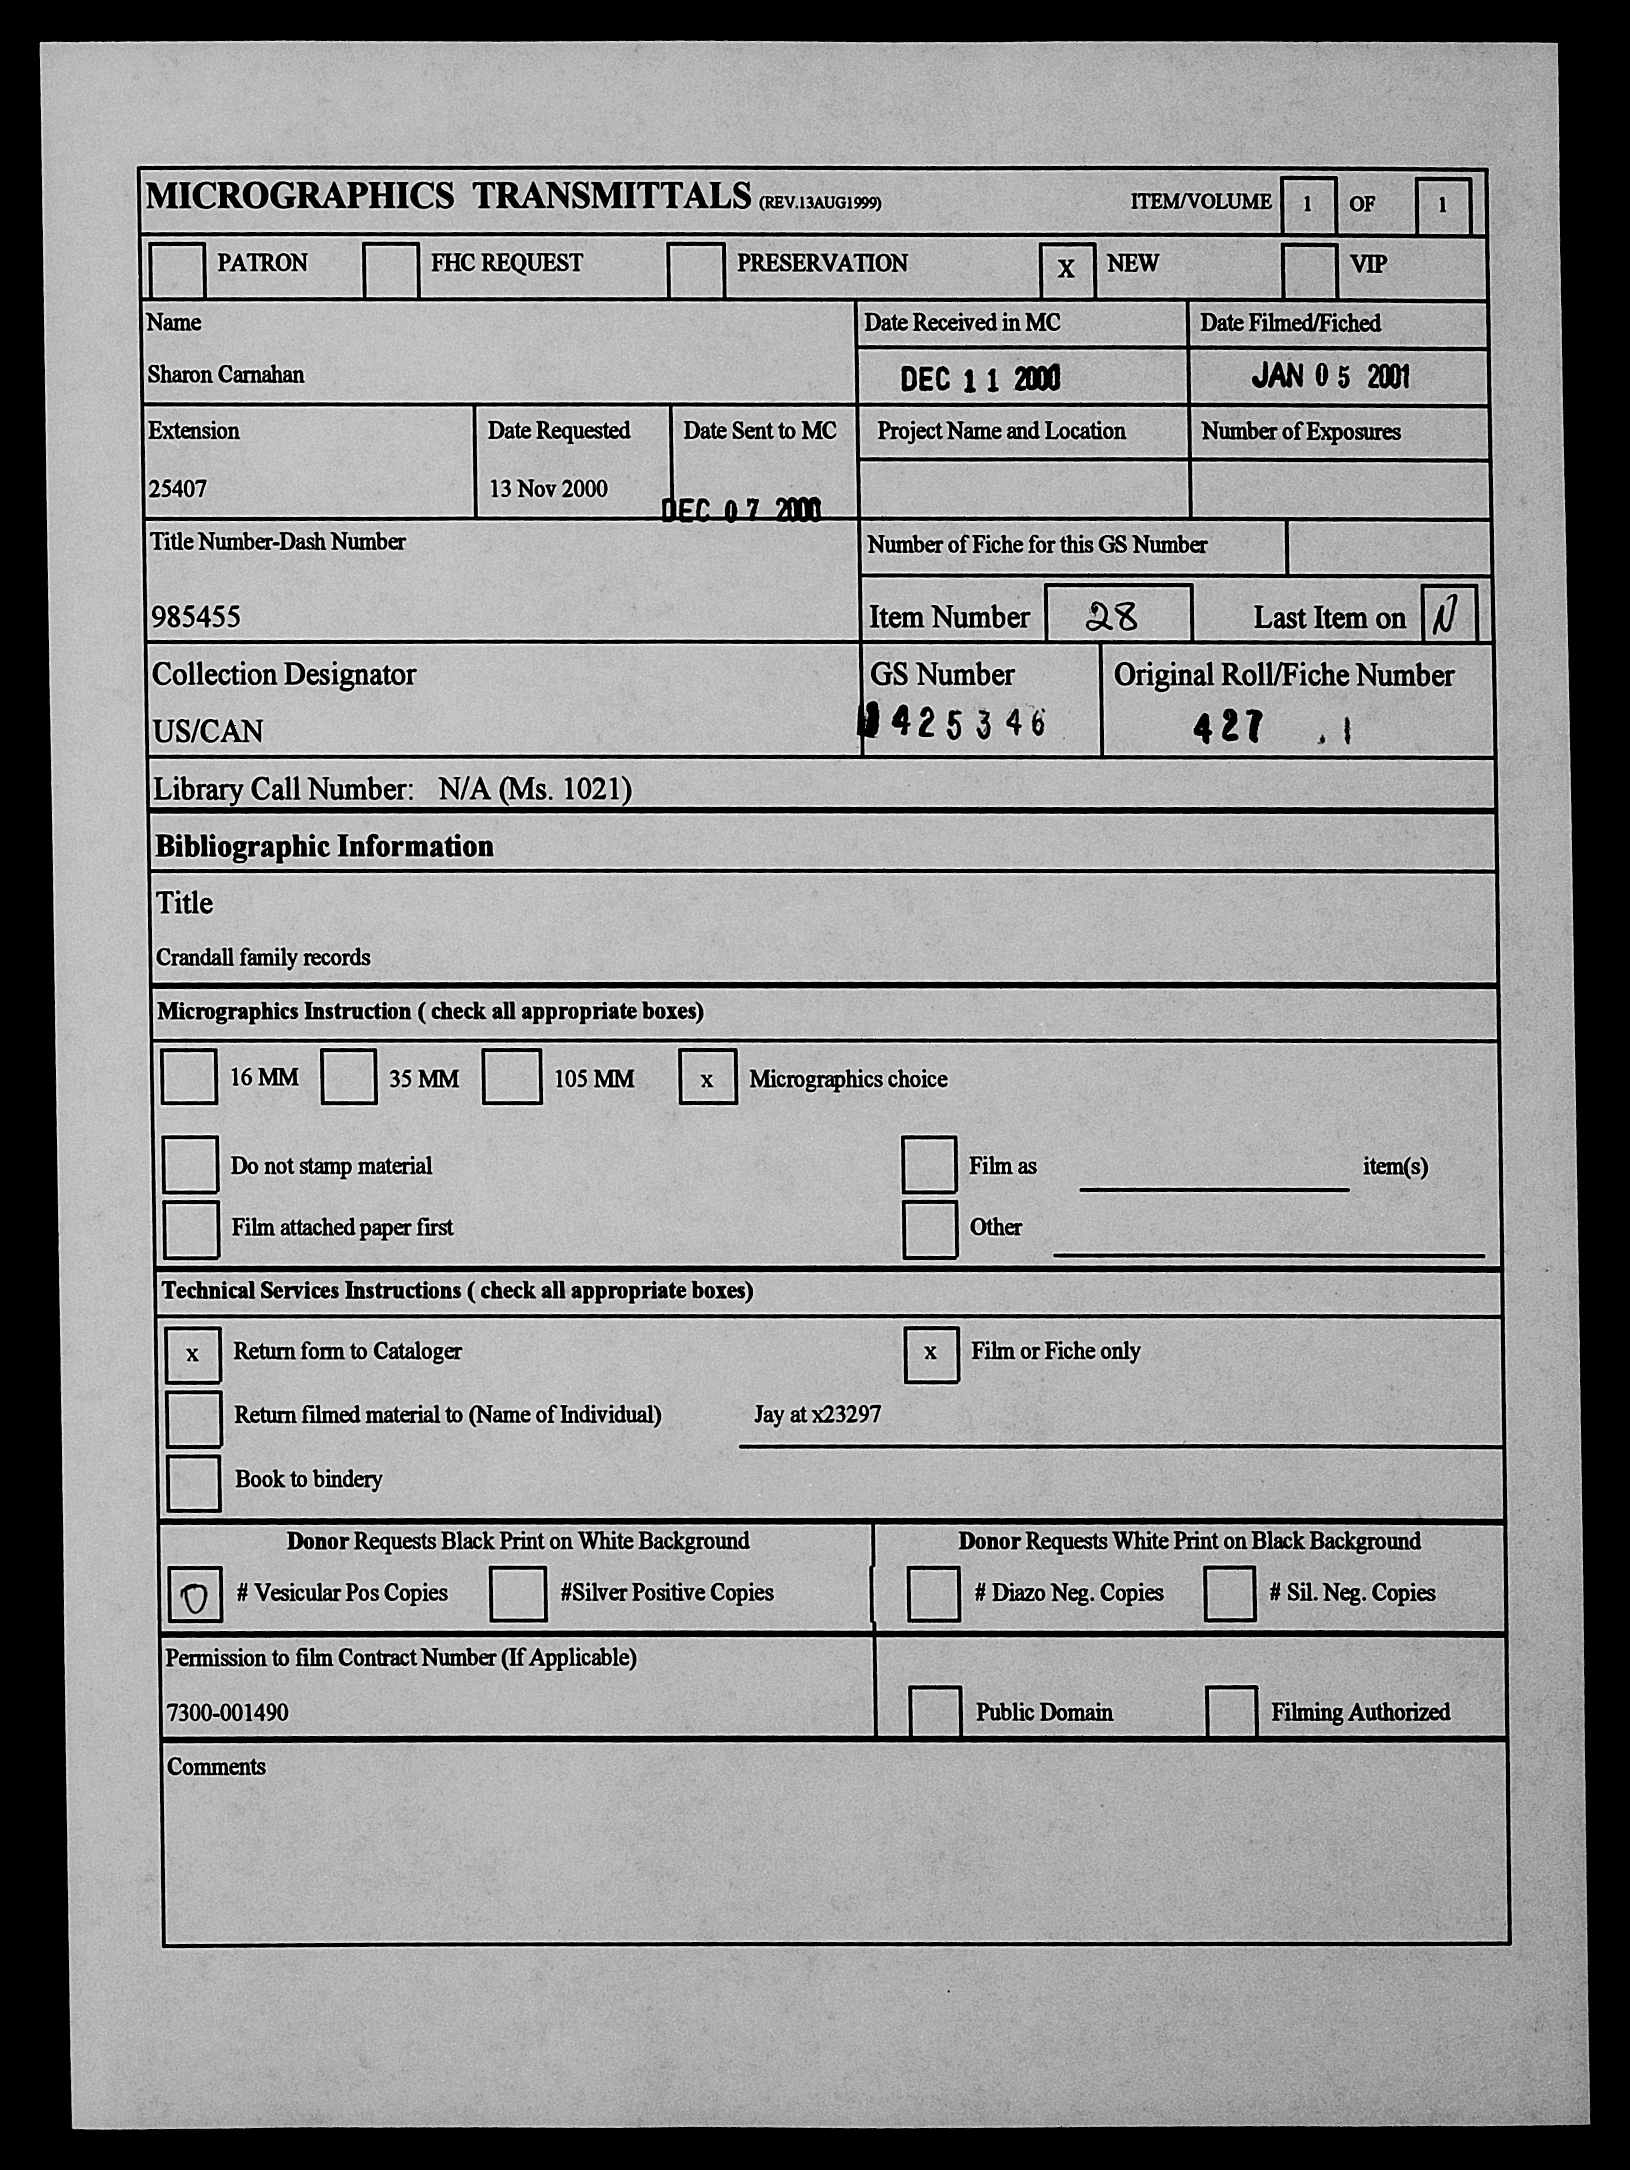 MICROGRAPHICS TRANSMITTALS (REV.13AUG1999) ITEM/VOLUME 1 OF 1
PATRON FHC REQUEST PRESERVATION X NEW VIP
Name Date Received in MC Date Filmed/Fiched
Sharon Carnahan DEC 11 2000 JAN 05 2001
Extension Date Requested Date Sent to MC Project Name and Location Number of Exposures
25407 13 Nov 2000 DEC 07 2000
Title Number-Dash Number Number of Fiche for this GS Number
985455 Item Number 28 Last Item on N
Collection Designator GS Number Original Roll/Fiche Number
US/CAN 1425346 427 .1
Library Call Number: N/A (Ms. 1021)
Bibliographic Information
Title
Crandall family records
Micrographics Instruction ( check all appropriate boxes)
16 MM 35 MM 105 MM x Micrographics choice
Do not stamp material Film as item(s)
Film attached paper first Other
Technical Services Instructions ( check all appropriate boxes)
x Return form to Cataloger x Film or Fiche only
Return filmed material to (Name of Individual) Jay at x23297
Book to bindery
Donor Requests Black Print on White Background Donor Requests White Print on Black Background
0 # Vesicular Pos Copies #Silver Positive Copies # Diazo Neg. Copies # Sil. Neg. Copies
Permission to film Contract Number (If Applicable)
7300-001490 Public Domain Filming Authorized
Comments